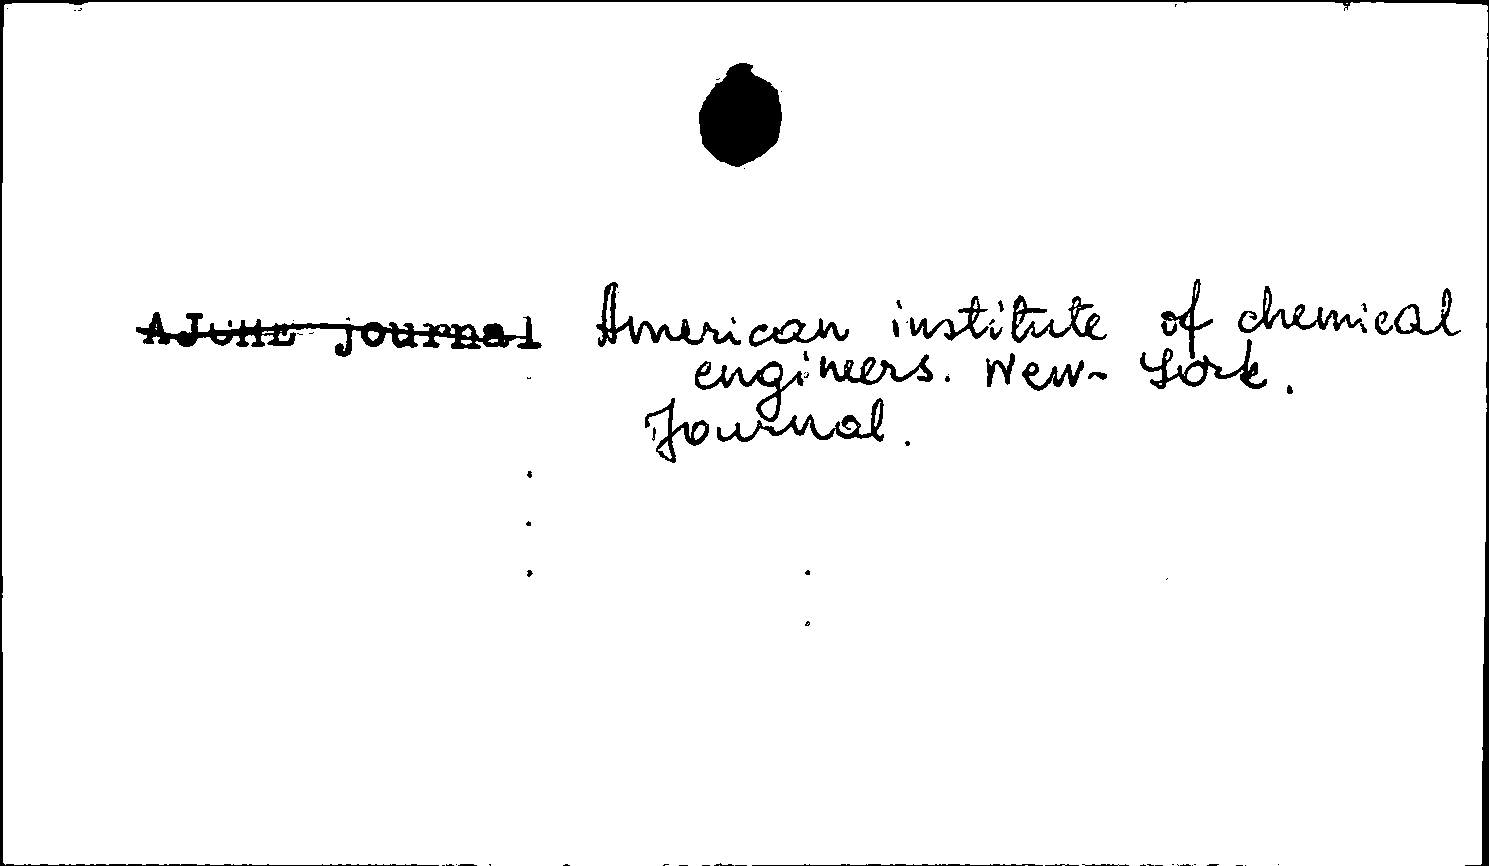 journal American institute of chemical
engineers. New-York.
Journal.